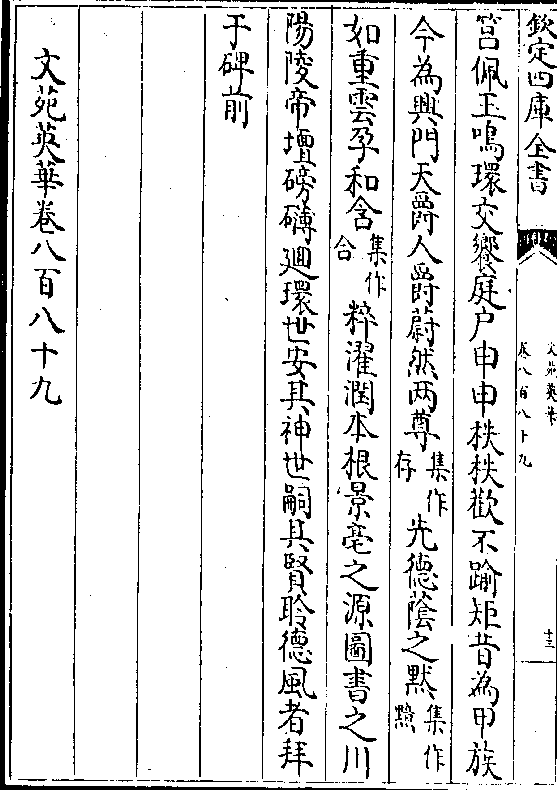 欽定四庫全書
文苑英華
卷八百八十九
十三
笤佩玉鳴環交饗庭户申申秩秩歡不踰矩昔為甲族
今為興門天爵人爵蔚然两尊集作存先德蔭之默集作黙
如重雲孕和含集作合粹濯潤本根景亳之源圖書之川
陽陵帝壇磅礴廻環世安其神世嗣其賢聆德風者拜
于碑前
文苑英華卷八百八十九